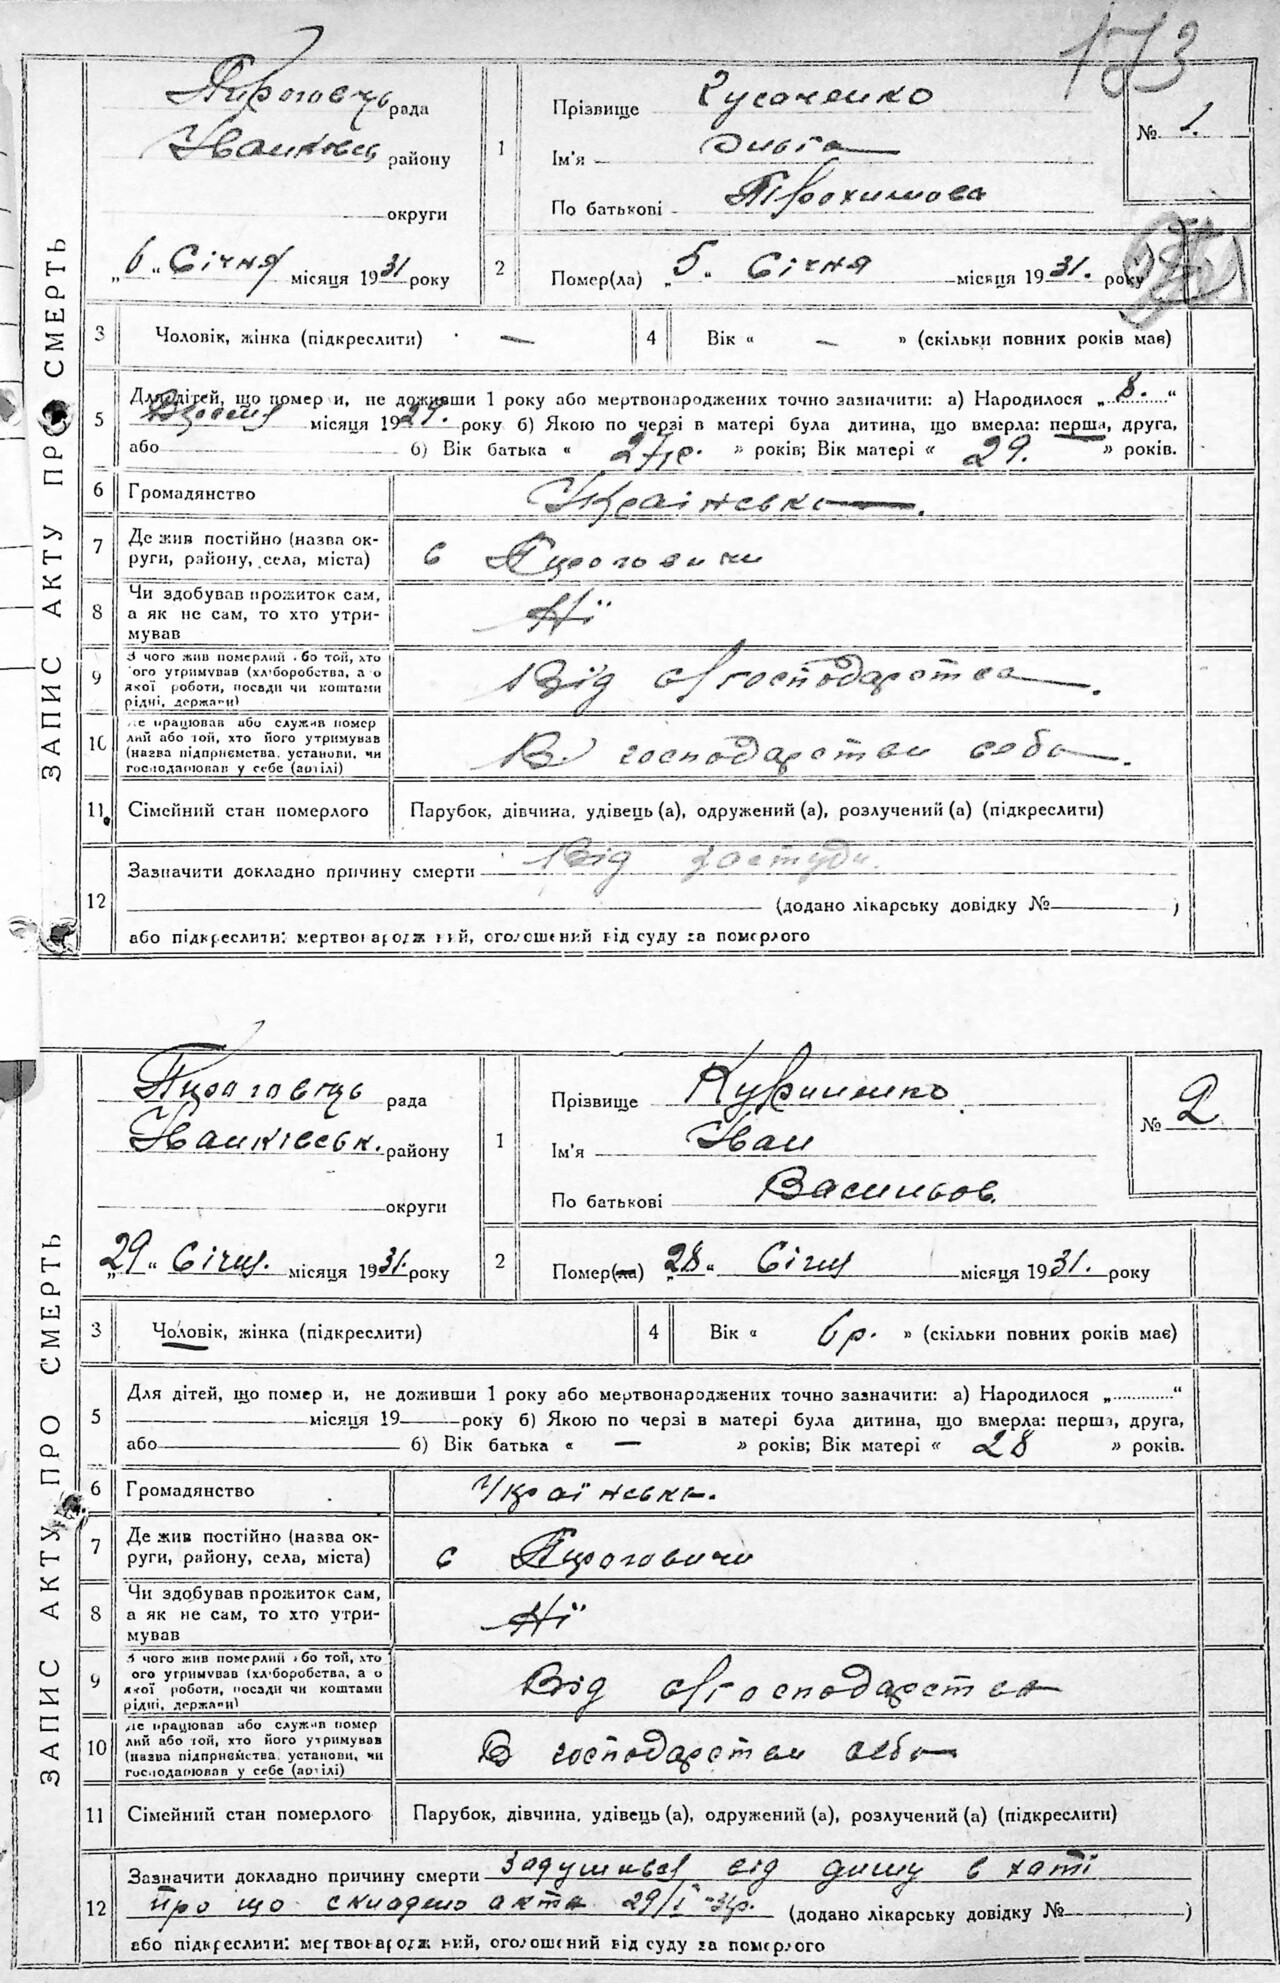 173
ЗАПИС АКТУ ПРО СМЕРТЬ
Пироговець рада
Іванківськ району
округи
„6“ Січня місяця 1931 року
1
Прізвище Русаченко
Ім'я Ольга
По батькові Трохимова
№ 1.
2
Помер(ла) „5“ Січня місяця 1931. року
3 Чоловік, жінка (підкреслити) —
4 Вік « — » (скільки повних років має)
5
Для дітей, що помер и, не доживши 1 року або мертвонароджених точно зазначити: а) Народилося „8.“
місяця 1929. року б) Якою по черзі в матері була дитина, що вмерла: перша, друга,
або б) Вік батька « 27р. » років; Вік матері « 29. » років.
6 Громадянство Українська.
7 Де жив постійно (назва ок-
руги, району, села, міста) с Пироговичи
8 Чи здобував прожиток сам,
а як не сам, то хто утри-
мував Ні
9 З чого жив померлий або той, хто
ого утримував (хліборобства, а о
якої роботи, посади чи коштами
рідні, держави) Від с/господарства.
10 Де працював або служив помер
лий або той, хто його утримував
(назва підприємства, установи, чи
господарював у себе (артілі) В господарстви себа.
11. Сімейний стан померлого Парубок, дівчина, удівець (а), одружений (а), розлучений (а) (підкреслити)
12
Зазначити докладно причину смерти Від застуди.
(додано лікарську довідку № )
або підкреслити: мертвонароджений, оголошений від суду за померлого
ЗАПИС АКТУ ПРО СМЕРТЬ
Пироговець рада
Іванківськ. району
округи
„29“ Січня. місяця 1931. року
1
Прізвище
Ім'я Іван
По батькові Васильов.
№ 2
2
Помер(ла) „28“ Січня місяця 1931. року
3 Чоловік, жінка (підкреслити)
4 Вік « 6р. » (скільки повних років має)
5
Для дітей, що помер и, не доживши 1 року або мертвонароджених точно зазначити: а) Народилося „ “
місяця 19 року б) Якою по черзі в матері була дитина, що вмерла: перша, друга,
або б) Вік батька « — » років; Вік матері « 28 » років.
6 Громадянство Українська.
7 Де жив постійно (назва ок-
руги, району, села, міста) с Пироговичи
8 Чи здобував прожиток сам,
а як не сам, то хто утри-
мував Ні
9 З чого жив померлий або той, хто
ого утримував (хліборобства, а о
якої роботи, посади чи коштами
рідні, держави) Від с/господарства
10 Де працював або служив помер
лий або той, хто його утримував
(назва підприємства, установи, чи
господарював у себе (артілі) В господарстви себа
11 Сімейний стан померлого Парубок, дівчина, удівець (а), одружений (а), розлучений (а) (підкреслити)
12
Зазначити докладно причину смерти Задушився від диму в хаті
про що складено акта 29/I-31р. (додано лікарську довідку № )
або підкреслити: мертвонароджений, оголошений від суду за померлого